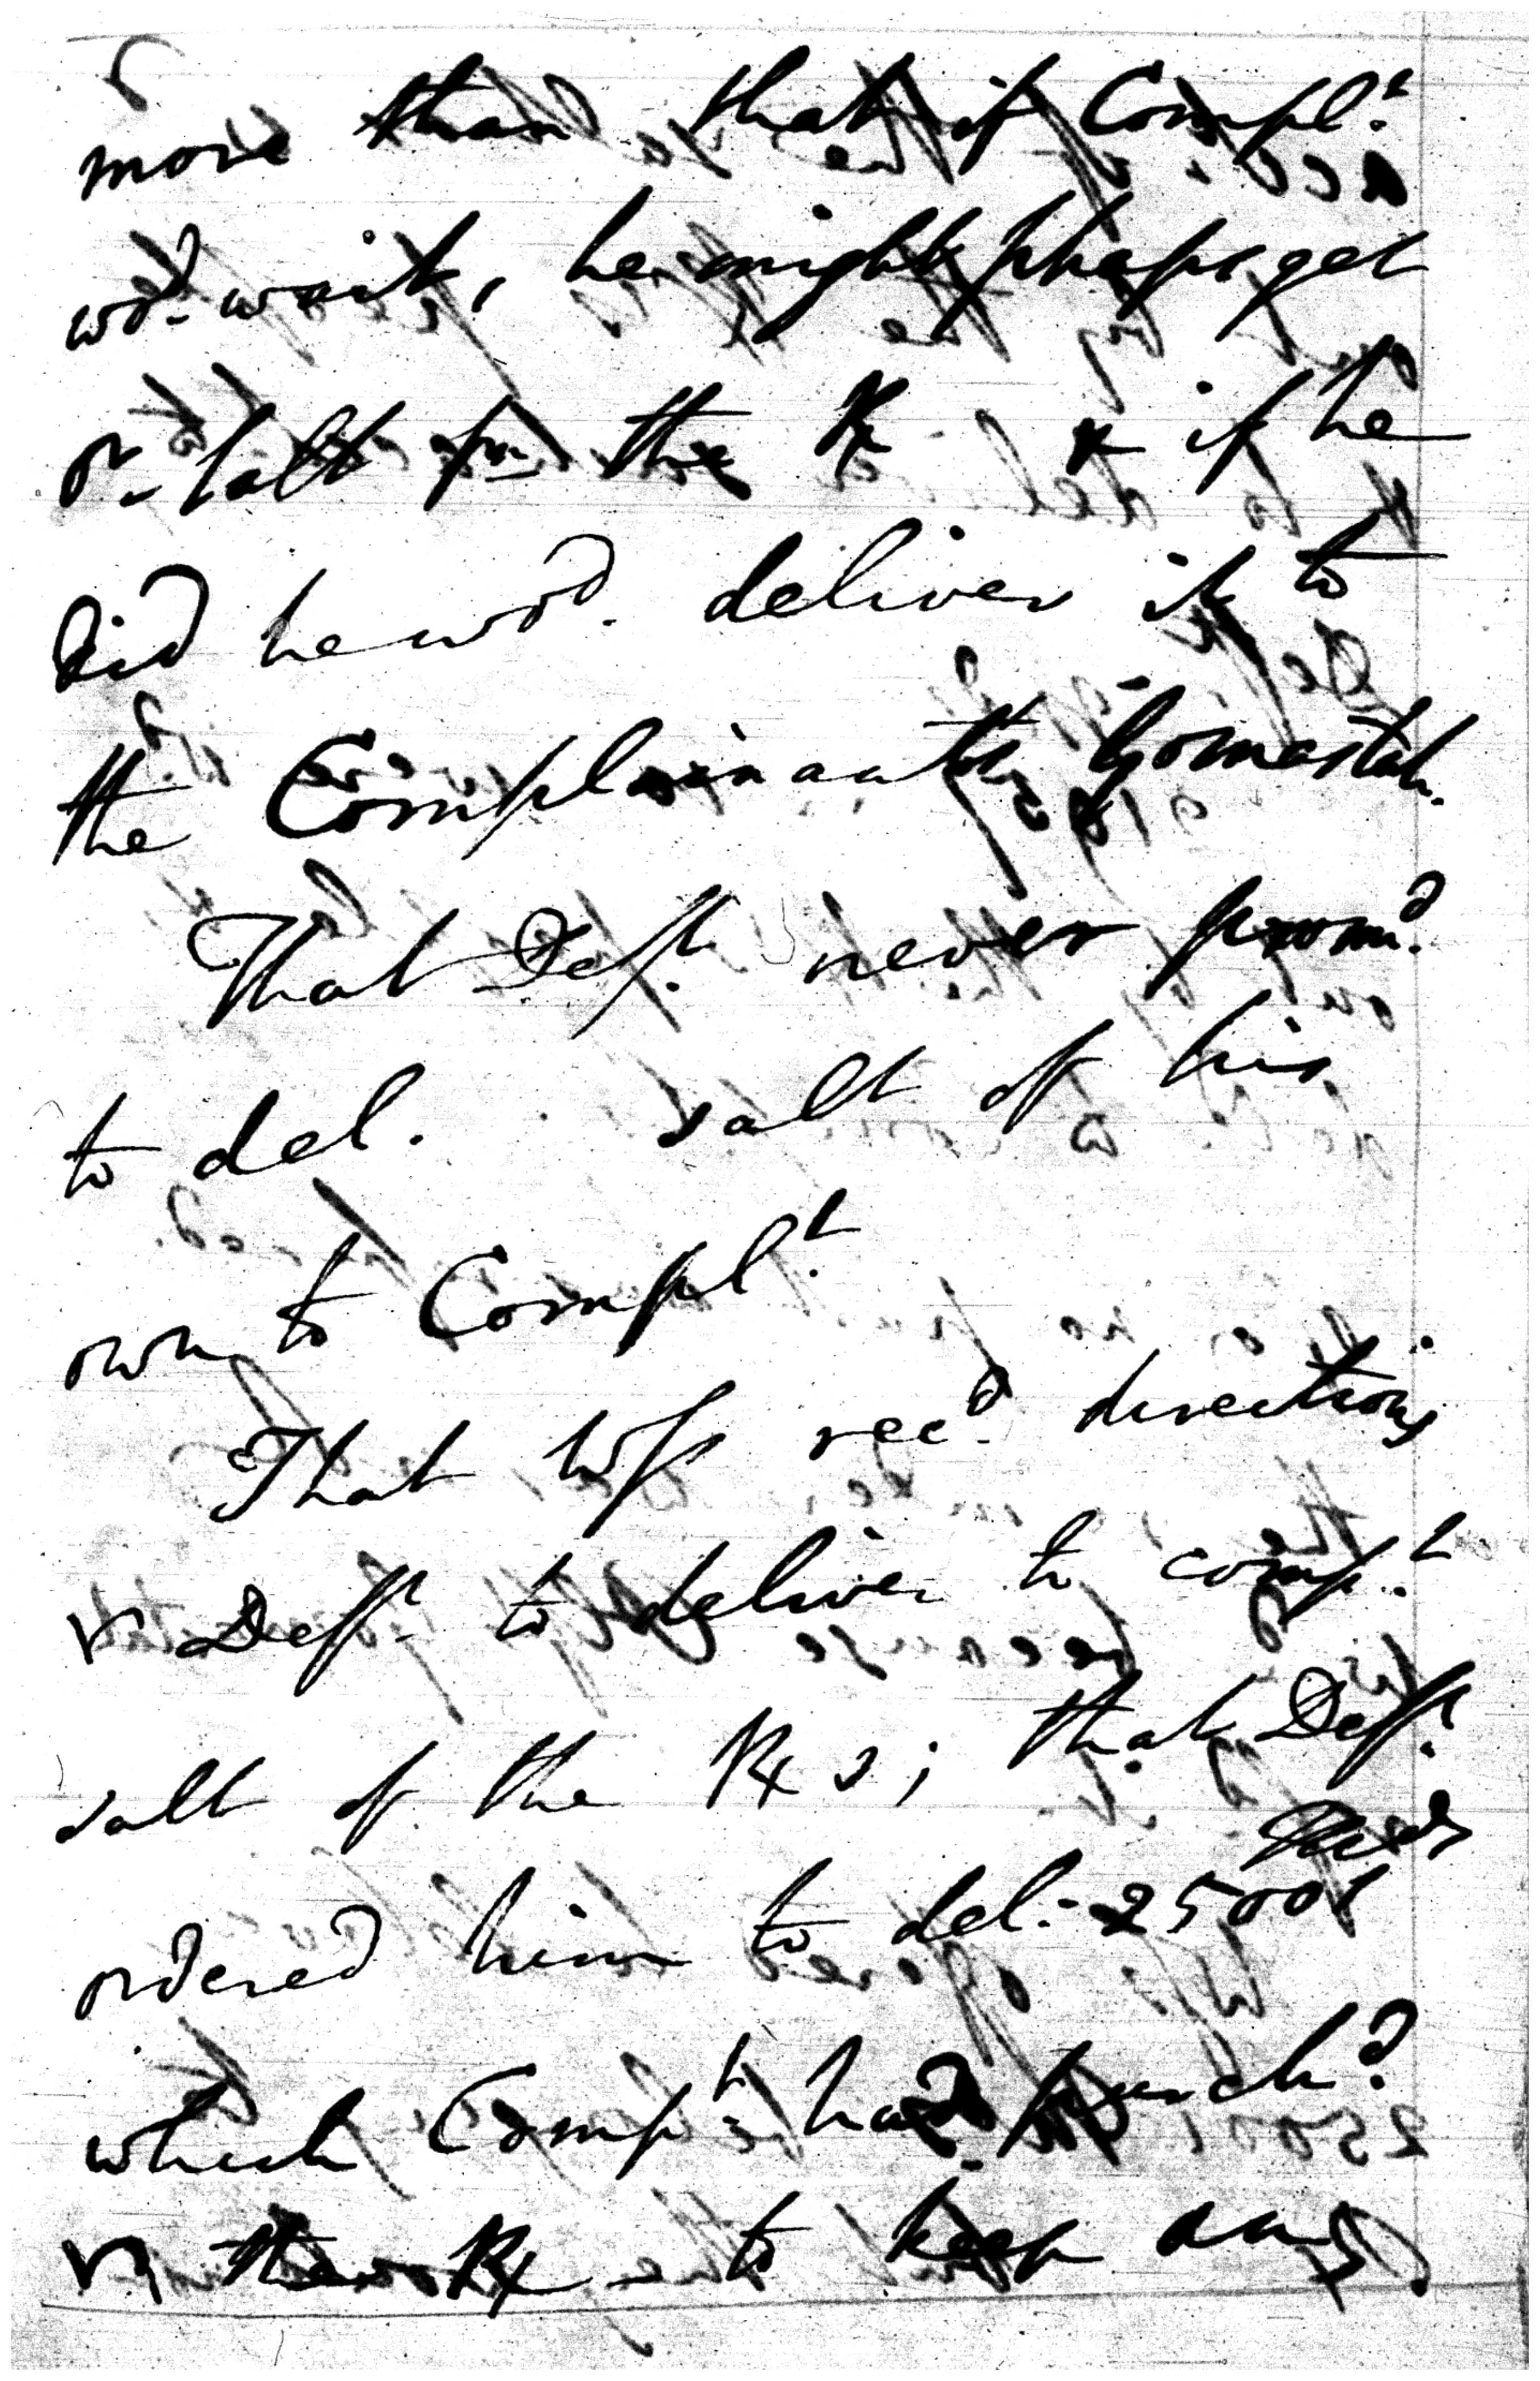 more than that if Compl.t
wd. wait, he might phaps get
salt fm the R & if he
did he wod. deliver it to
the Complainants Gomastah.
That Deft. never prom.d
to del. salt of his
own to Compl.t
That Wss rec.d directions
Deft. to deliver to comp.t
salt of the Rx s; that Deft.
ordered him to del. 2500
which Comp.t had purch.d
the Rx to keep any